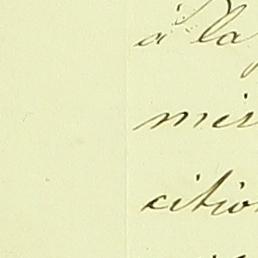 à la
mir
citio